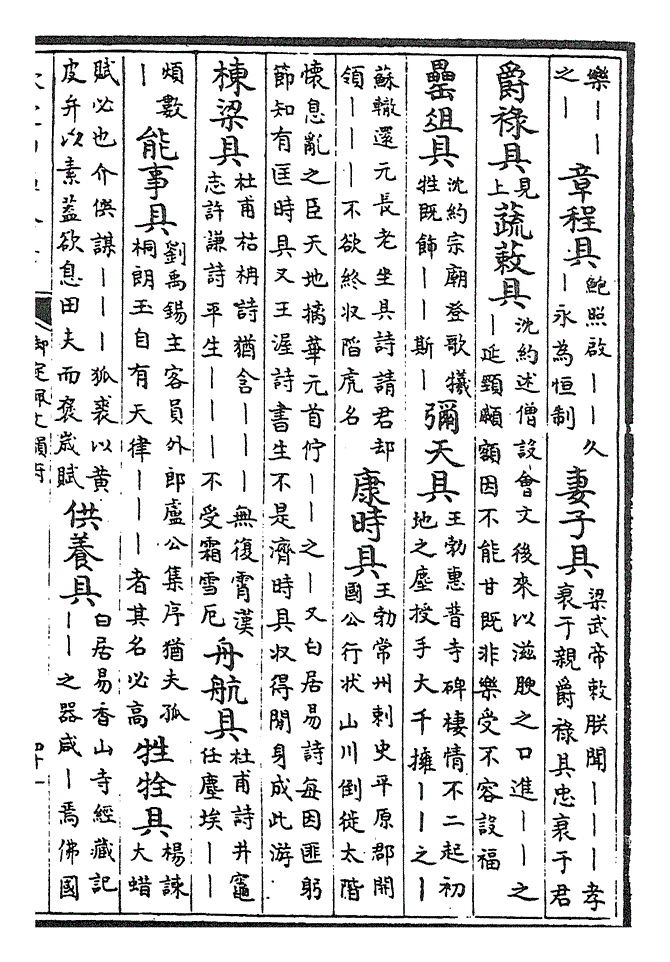 樂｜｜
之｜
章程具
鮑照啟｜｜久
｜永為恒制
妻子具
梁武帝敕朕聞｜｜｜孝
衰于親爵祿具忠衰于君
爵祿具
見
上
蔬蔌具
沈約述僧設會文後來以滋腴之口進｜｜之
｜延頸頻額因不能甘既非樂受不容設福
罍俎具
沈約宗廟登歌犧
牲既飾｜｜斯｜
彌天具
王勃惠普寺碑棲情不二起初
地之塵授手大千擁｜｜之｜
蘇轍還元長老坐具詩請君却
領｜｜｜不欲終収陷虎名
康時具
王勃常州刺史平原郡開
國公行狀山川倒徙太階
懷息亂之臣天地摛華元首佇｜｜之｜又白居易詩每因匪躬
節知有匡時具又王渥詩書生不是濟時具収得閒身成此游
棟梁具
杜甫枯柟詩猶含｜｜｜無復霄漢
志許謙詩平生｜｜｜不受霜雪厄
舟航具
杜甫詩井竈
任塵埃｜｜
煩數
｜
能事具
劉禹錫主客員外郎盧公集序猶夫孤
桐朗玉自有天律｜｜｜者其名必高
牲牷具
楊諫
大蜡
賦必也介僎謀｜｜｜狐裘以黄
皮弁以素蓋欲息田夫而褒歲賦
供養具
白居易香山寺經藏記
｜｜之器咸｜焉佛國
御定佩文韻府